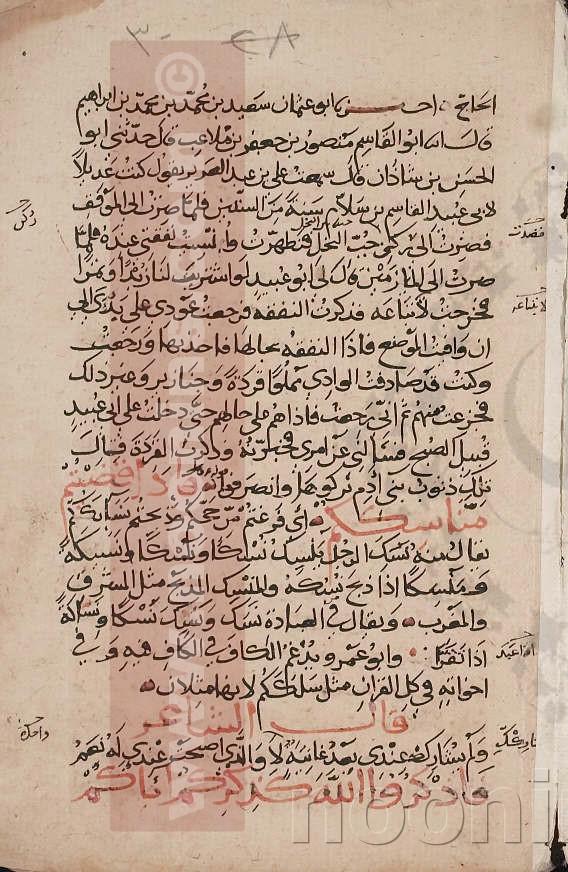 الحاج احسن ابو عثمان سعيد بن محمد بن محمد بن ابراهيم
قال انا ابو القاسم منصور بن جعفر بن ملاعب قال حدثني ابو
الحسن بن شاذان قال سمعت علي بن عبد يقول كنت عديلا
لابي عبيد القاسم بن سلام سنة من السنين فلما صرت الى الموقف
فصرت الى جب النخل فتطهرت ونسيت نفقتي عنده فلما
صرت الى المازمين قال لي ابو عبيد لو اشتريت لنا زبدا وتمرا
فخرجت لابتاعه فذكرت النفقه فرجعت عودي على بدئي الى
ان وافيت الموضع فاذا النفقه بحالها فاخذتها ورجعت
وكنت قد صادفت الوادي مملوا قردة وخنازير وغير ذلك
فجزعت منهم ثم اني رجعت فاذا هم على حالهم حتى دخلت على ابي عبيد
قبيل الصبح فسالني عن امري فخبرته وذكرت القردة فقال
تلك ذنوب بني ادم تركوها وانصرفوا قوله فاذا قضيتم
مناسككم اي فرغتم من حجكم وذبحتم نسائككم
يقال منه نسك الرجل ينسك نسكا ونسكا ونسيكة
ومنسكا اذا ذبح نسكه والمنسك المذبح مثل المشرق
والمغرب ويقال في العبادة نسك ونسك نسكا ونساكة
اذا تقرا وابو عمرو يدغم الكاف في الكاف فيه وفي
اخواته في كل القران مثل سلككم لانهما مثلان
قال الشاعر
ولم اشاركه عندي بعد غاسه لا والذي اصبحت عندي له نعم
واذكروا الله كذكركم اباكم